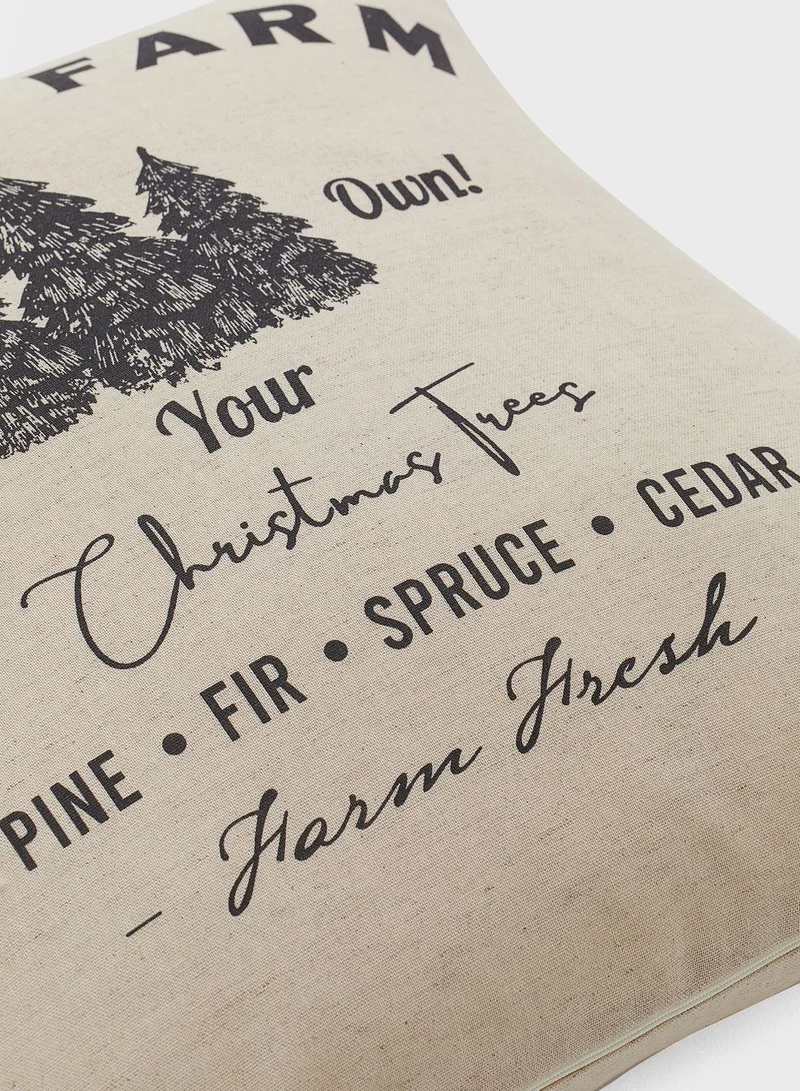 FARM
Own!
Your
Christmas Trees
PINE • FIR • SPRUCE • CEDAR
- Farm Fresh